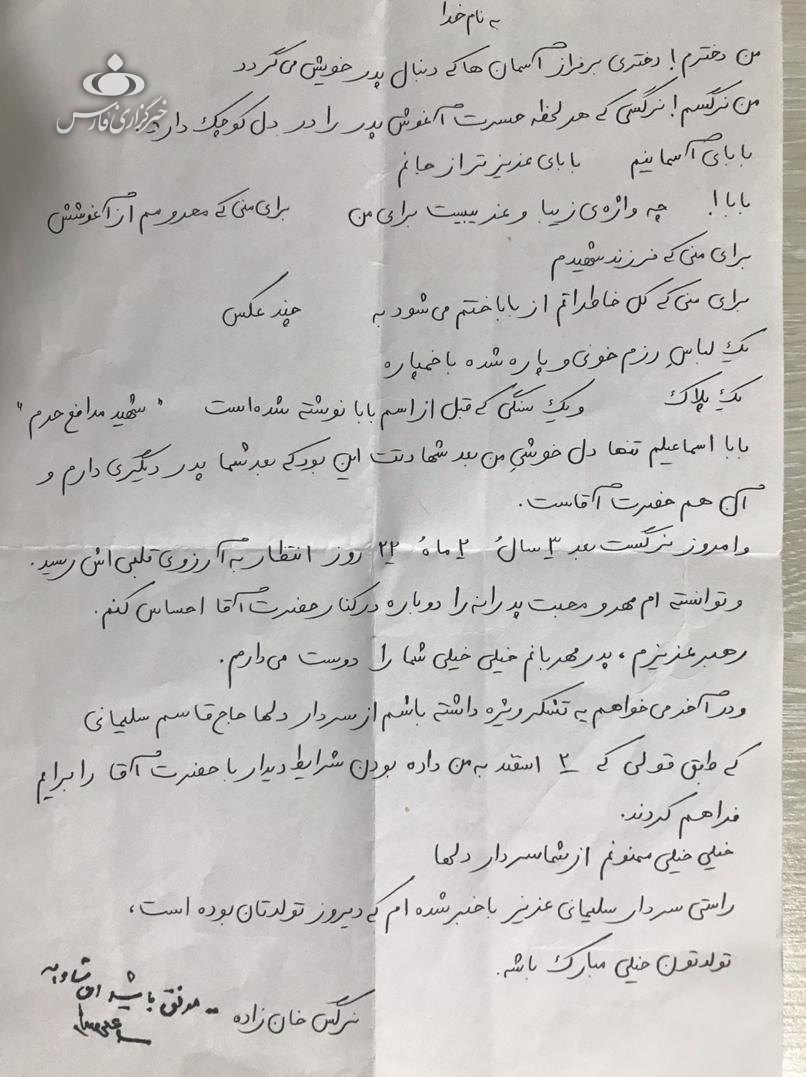 به نام خدا
من دخترم! دختری بر فراز آسمان ها که دنبال پدر خویش می گردد
من نرگسم! نرگسی که هر لحظه حسرت آغوش پدر را در دل کوچک دارد
خبرگزاری فارس
بابای آسمانیم بابای عزیز تر از جانم
بابا! چه واژه ی زیبا و غریبیست برای من برای منی که محرومم از آغوشش
برای منی که فرزند شهیدم
برای منی که کل خاطراتم از بابا ختم می شود به چند عکس
یک لباس رزم خونی و پاره شده با خمپاره
یک پلاک و یک سنگی که قبل از اسم بابا نوشته شده است "شهید مدافع حرم"
بابا اسماعیلم تنها دل خوشیِ من بعد شهادتت این بود که بعد شما پدر دیگری دارم و
آن هم حضرت آقاست.
و امروز نرگست بعد ۳ سال ُ ۲ ماه ُ ۲۲ روز انتظار به آرزوی قلبی اش رسید.
و توانسته ام مهر و محبت پدرانه را دوباره در کنار حضرت آقا احساس کنم.
رهبر عزیزم ، پدر مهربانم خیلی خیلی شما را دوست می دارم.
و در آخر می خواهم یه تشکر ویژه داشته باشم از سردار دلها حاج قاسم سلیمانی
که طبق قولی که ۲ اسفند به من داده بودن شرایط دیدار با حضرت آقا را برایم
فراهم کردند.
خیلی خیلی ممنونم از شما سردار دلها
راستی سردار سلیمانی عزیز باخبر شده ام که دیروز تولدتان بوده است،
تولدتون خیلی مبارک باشه.
نرگس خان زاده
موفق باشید ان شاءالله